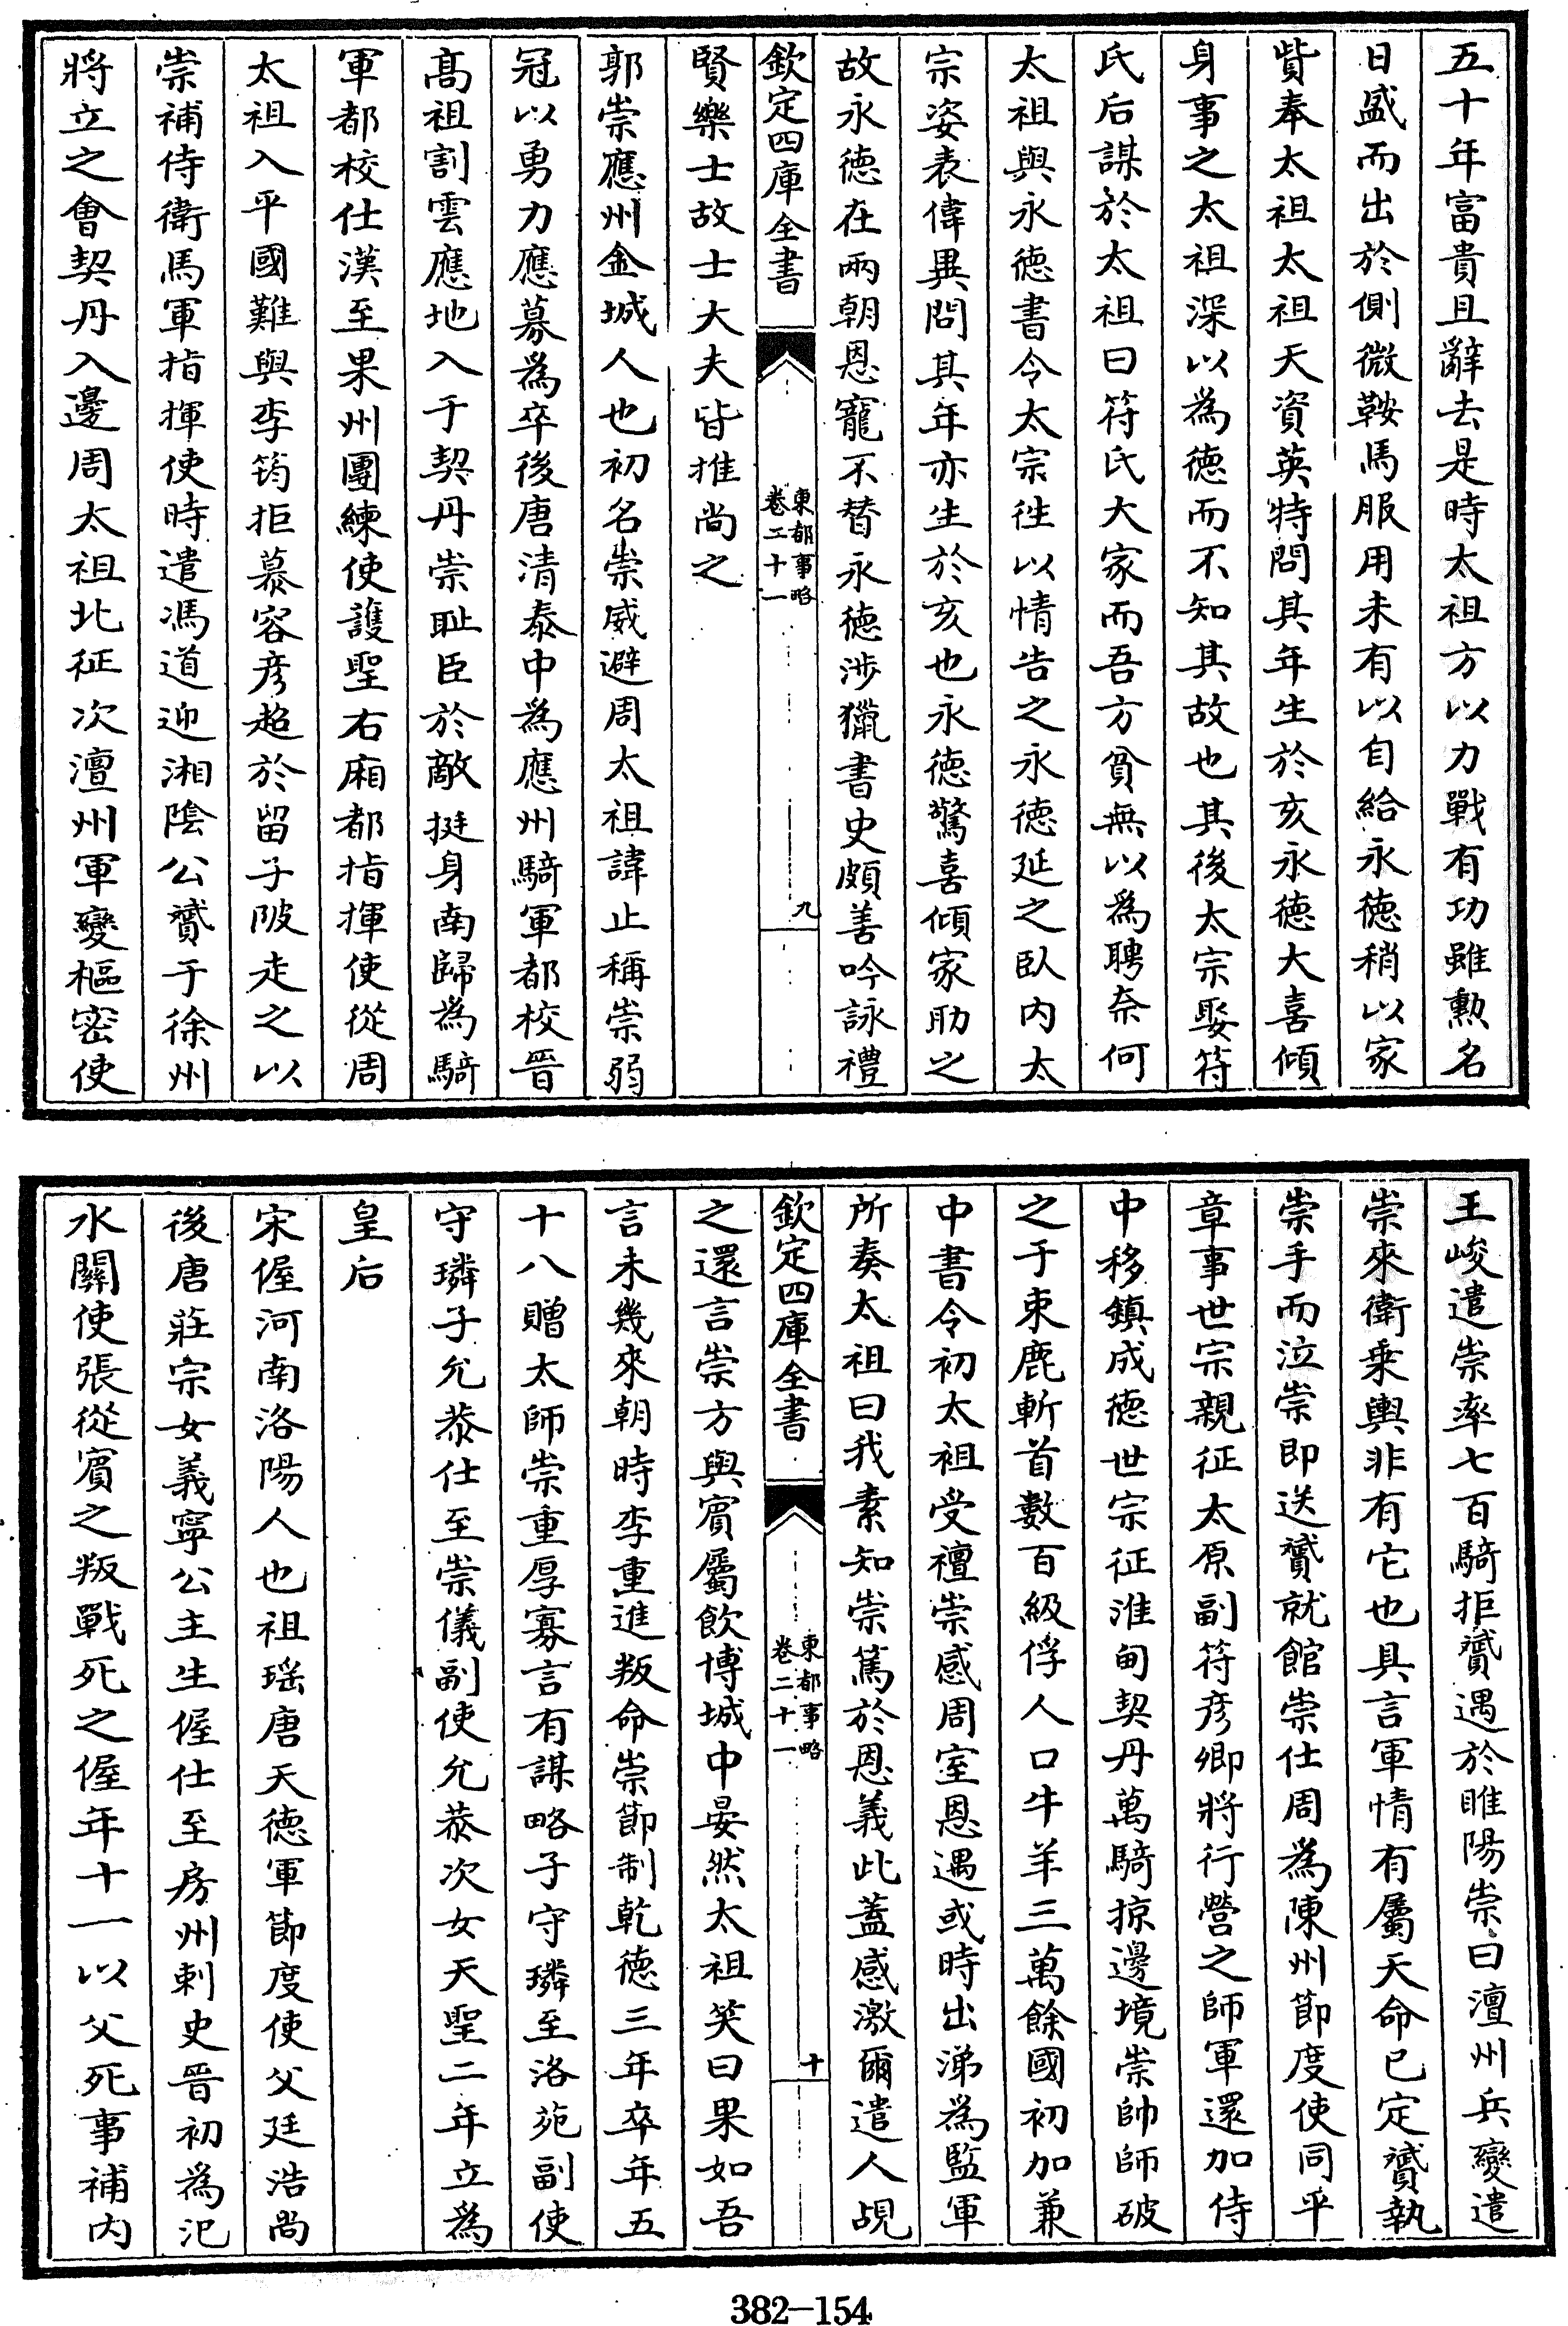 五十年富貴且辭去是時太祖方以力戰有功雖勲名
日盛而出於側微鞍馬服用未有以自給永徳稍以家
貲奉太祖太祖天資英特問其年生於亥永徳大喜傾
身事之太祖深以為徳而不知其故也其後太宗娶符
氏后謀於太祖曰符氏大家而吾方貧無以為聘奈何
太祖與永徳書令太宗徃以情告之永徳延之臥内太
宗姿表偉異問其年亦生於亥也永徳驚喜傾家助之
故永徳在兩朝恩寵不替永徳渉獵書史頗善吟詠禮
欽定四庫全書
東都事略
卷二十一
九
賢樂士故士大夫皆推尚之
郭崇應州金城人也初名崇威避周太祖諱止稱崇弱
冠以勇力應募為卒後唐清泰中為應州騎軍都校晉
髙祖割雲應地入于契丹崇耻臣於敵挺身南歸為騎
軍都校仕漢至果州團練使護聖右廂都指揮使從周
太祖入平國難與李筠拒慕容彦超於留子陂走之以
崇補侍衛馬軍指揮使時遣馮道迎湘陰公贇于徐州
將立之會契丹入邊周太祖北征次澶州軍變樞密使
王峻遣崇率七百騎拒贇遇於睢陽崇曰澶州兵變遣
崇來衛乗輿非有它也具言軍情有屬天命已定贇執
崇手而泣崇即送贇就館崇仕周為陳州節度使同平
章事世宗親征太原副符彦卿將行營之師軍還加侍
中移鎮成徳世宗征淮甸契丹萬騎掠邊境崇帥師破
之于束鹿斬首數百級俘人口牛羊三萬餘國初加兼
中書令初太祖受禪崇感周室恩遇或時出涕為監軍
所奏太祖曰我素知崇篤於恩義此蓋感激爾遣人覘
欽定四庫全書
東都事略
卷二十一
十
之還言崇方與賔屬飲博城中晏然太祖笑曰果如吾
言未幾來朝時李重進叛命崇節制乾徳三年卒年五
十八贈太師崇重厚寡言有謀略子守璘至洛苑副使
守璘子允恭仕至崇儀副使允恭次女天聖二年立為
皇后
宋偓河南洛陽人也祖瑶唐天徳軍節度使父廷浩尚
後唐莊宗女義寧公主生偓仕至房州刺史晉初為汜
水關使張從賔之叛戰死之偓年十一以父死事補内
382-154